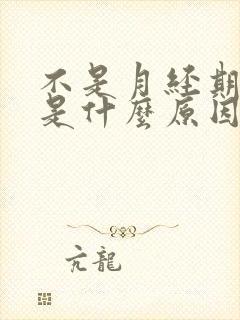 不是月经期
是什麼原因
亢龍